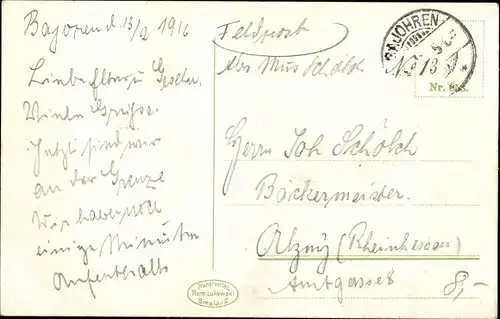 Bajoren d. 13/2 1916
Liebe Eltern u. Geschw.
Viele Grüsse.
Jetzt sind wir
an der Grenze
Wir haben noch
einige Minuten
Aufenthalt
Feldpost
Abs. Mus. Schölch
BAJOHREN
Nr. 868.
Herrn Joh Schölch
Bäckermeister.
Alzey (Rheinhessen)
Amtgasse 8
8,-
Kunstverlag
Herm. Lukowski
Breslau